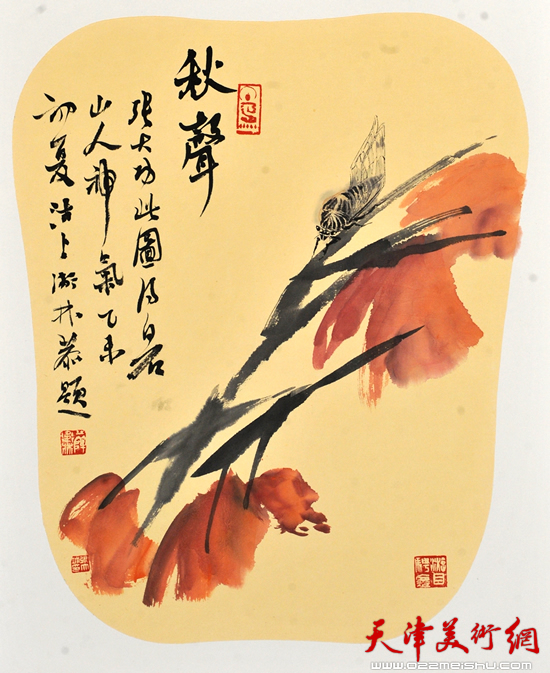 秋聲
張大功此圖得白石
山人神氣乙未
初夏沽上
題
天津美術網
www.022meishu.com